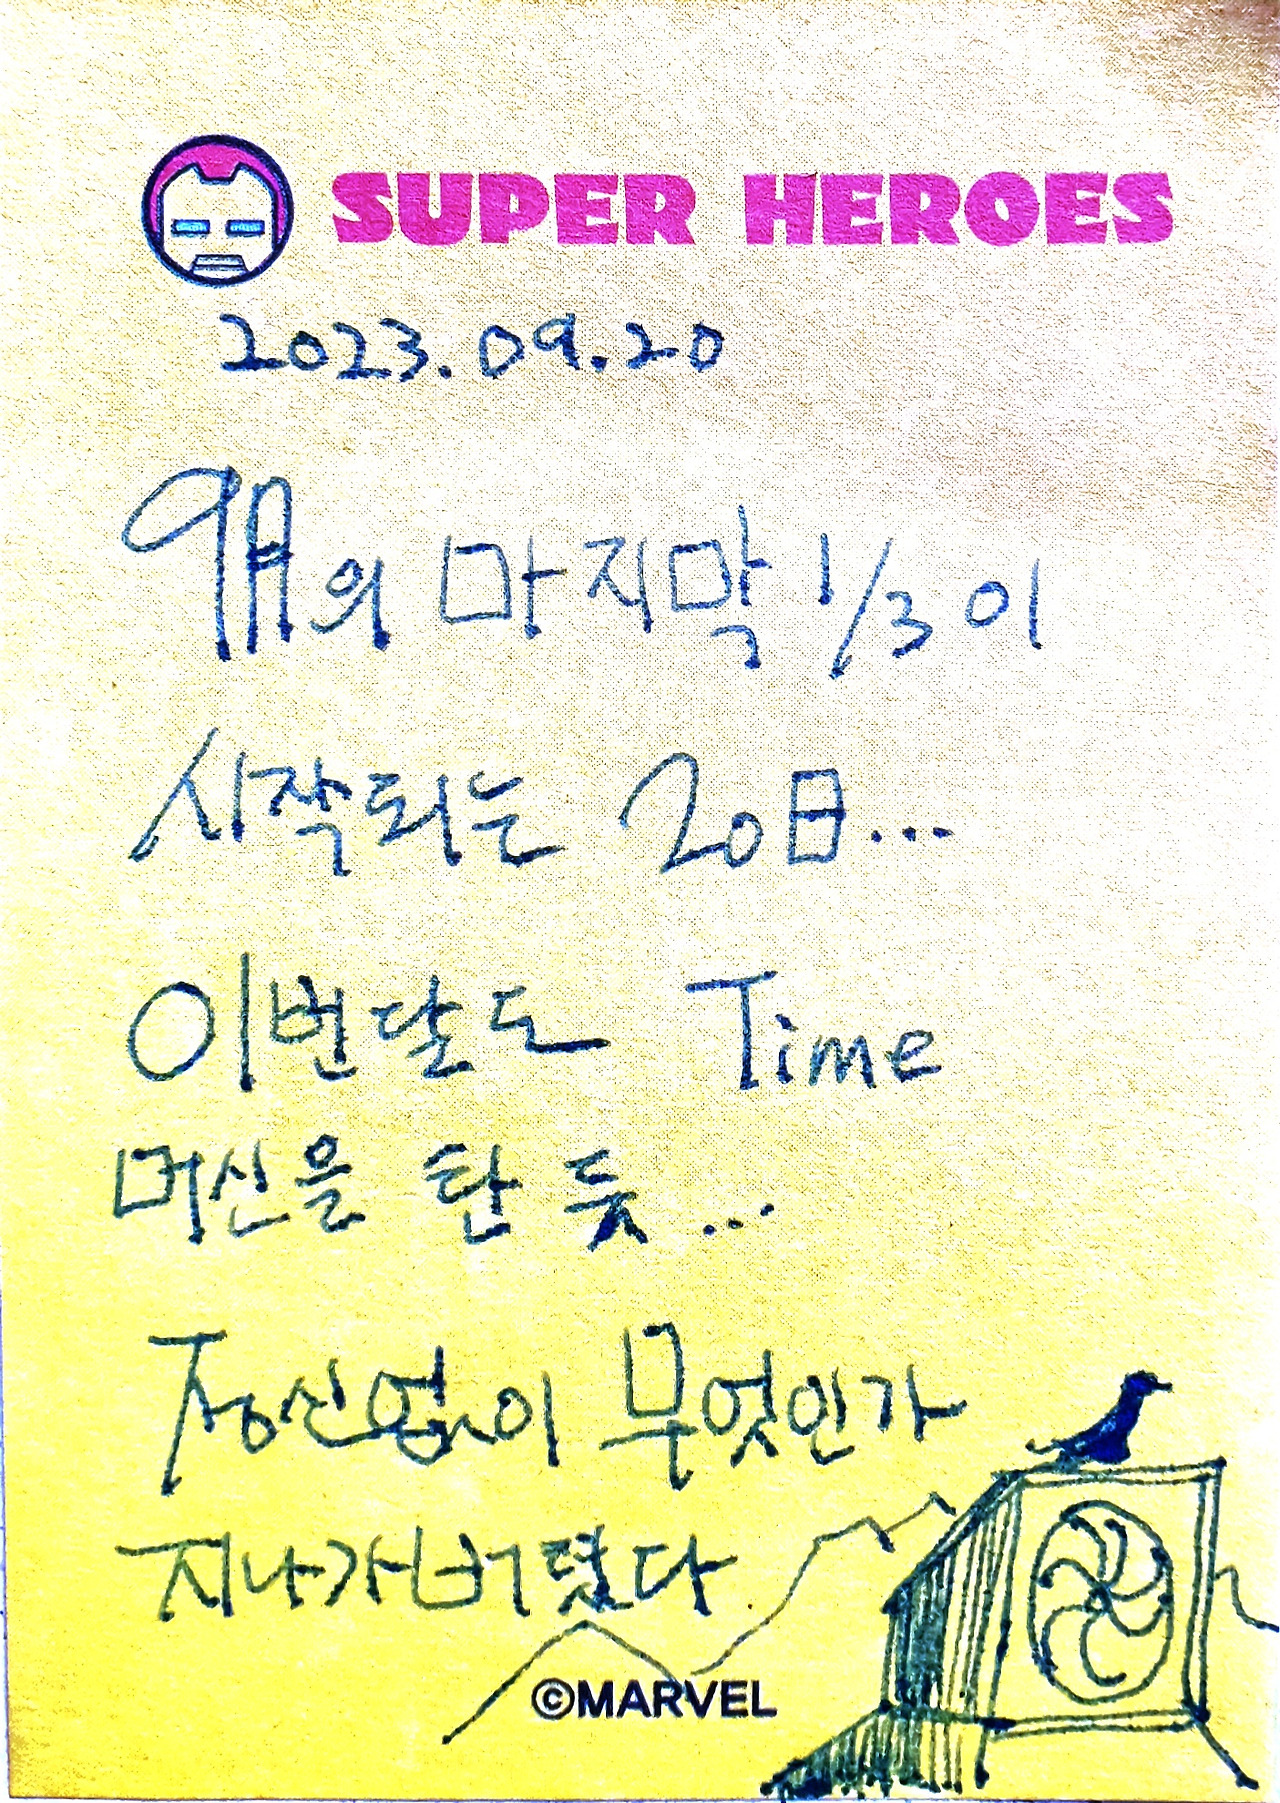 SUPER HEROES
2023.09.20
9月의 마지막 1/3이
시작되는 20日...
이번달도 Time
머신을 탄 듯...
정신없이 무엇인가
지나가버렸다.
©MARVEL